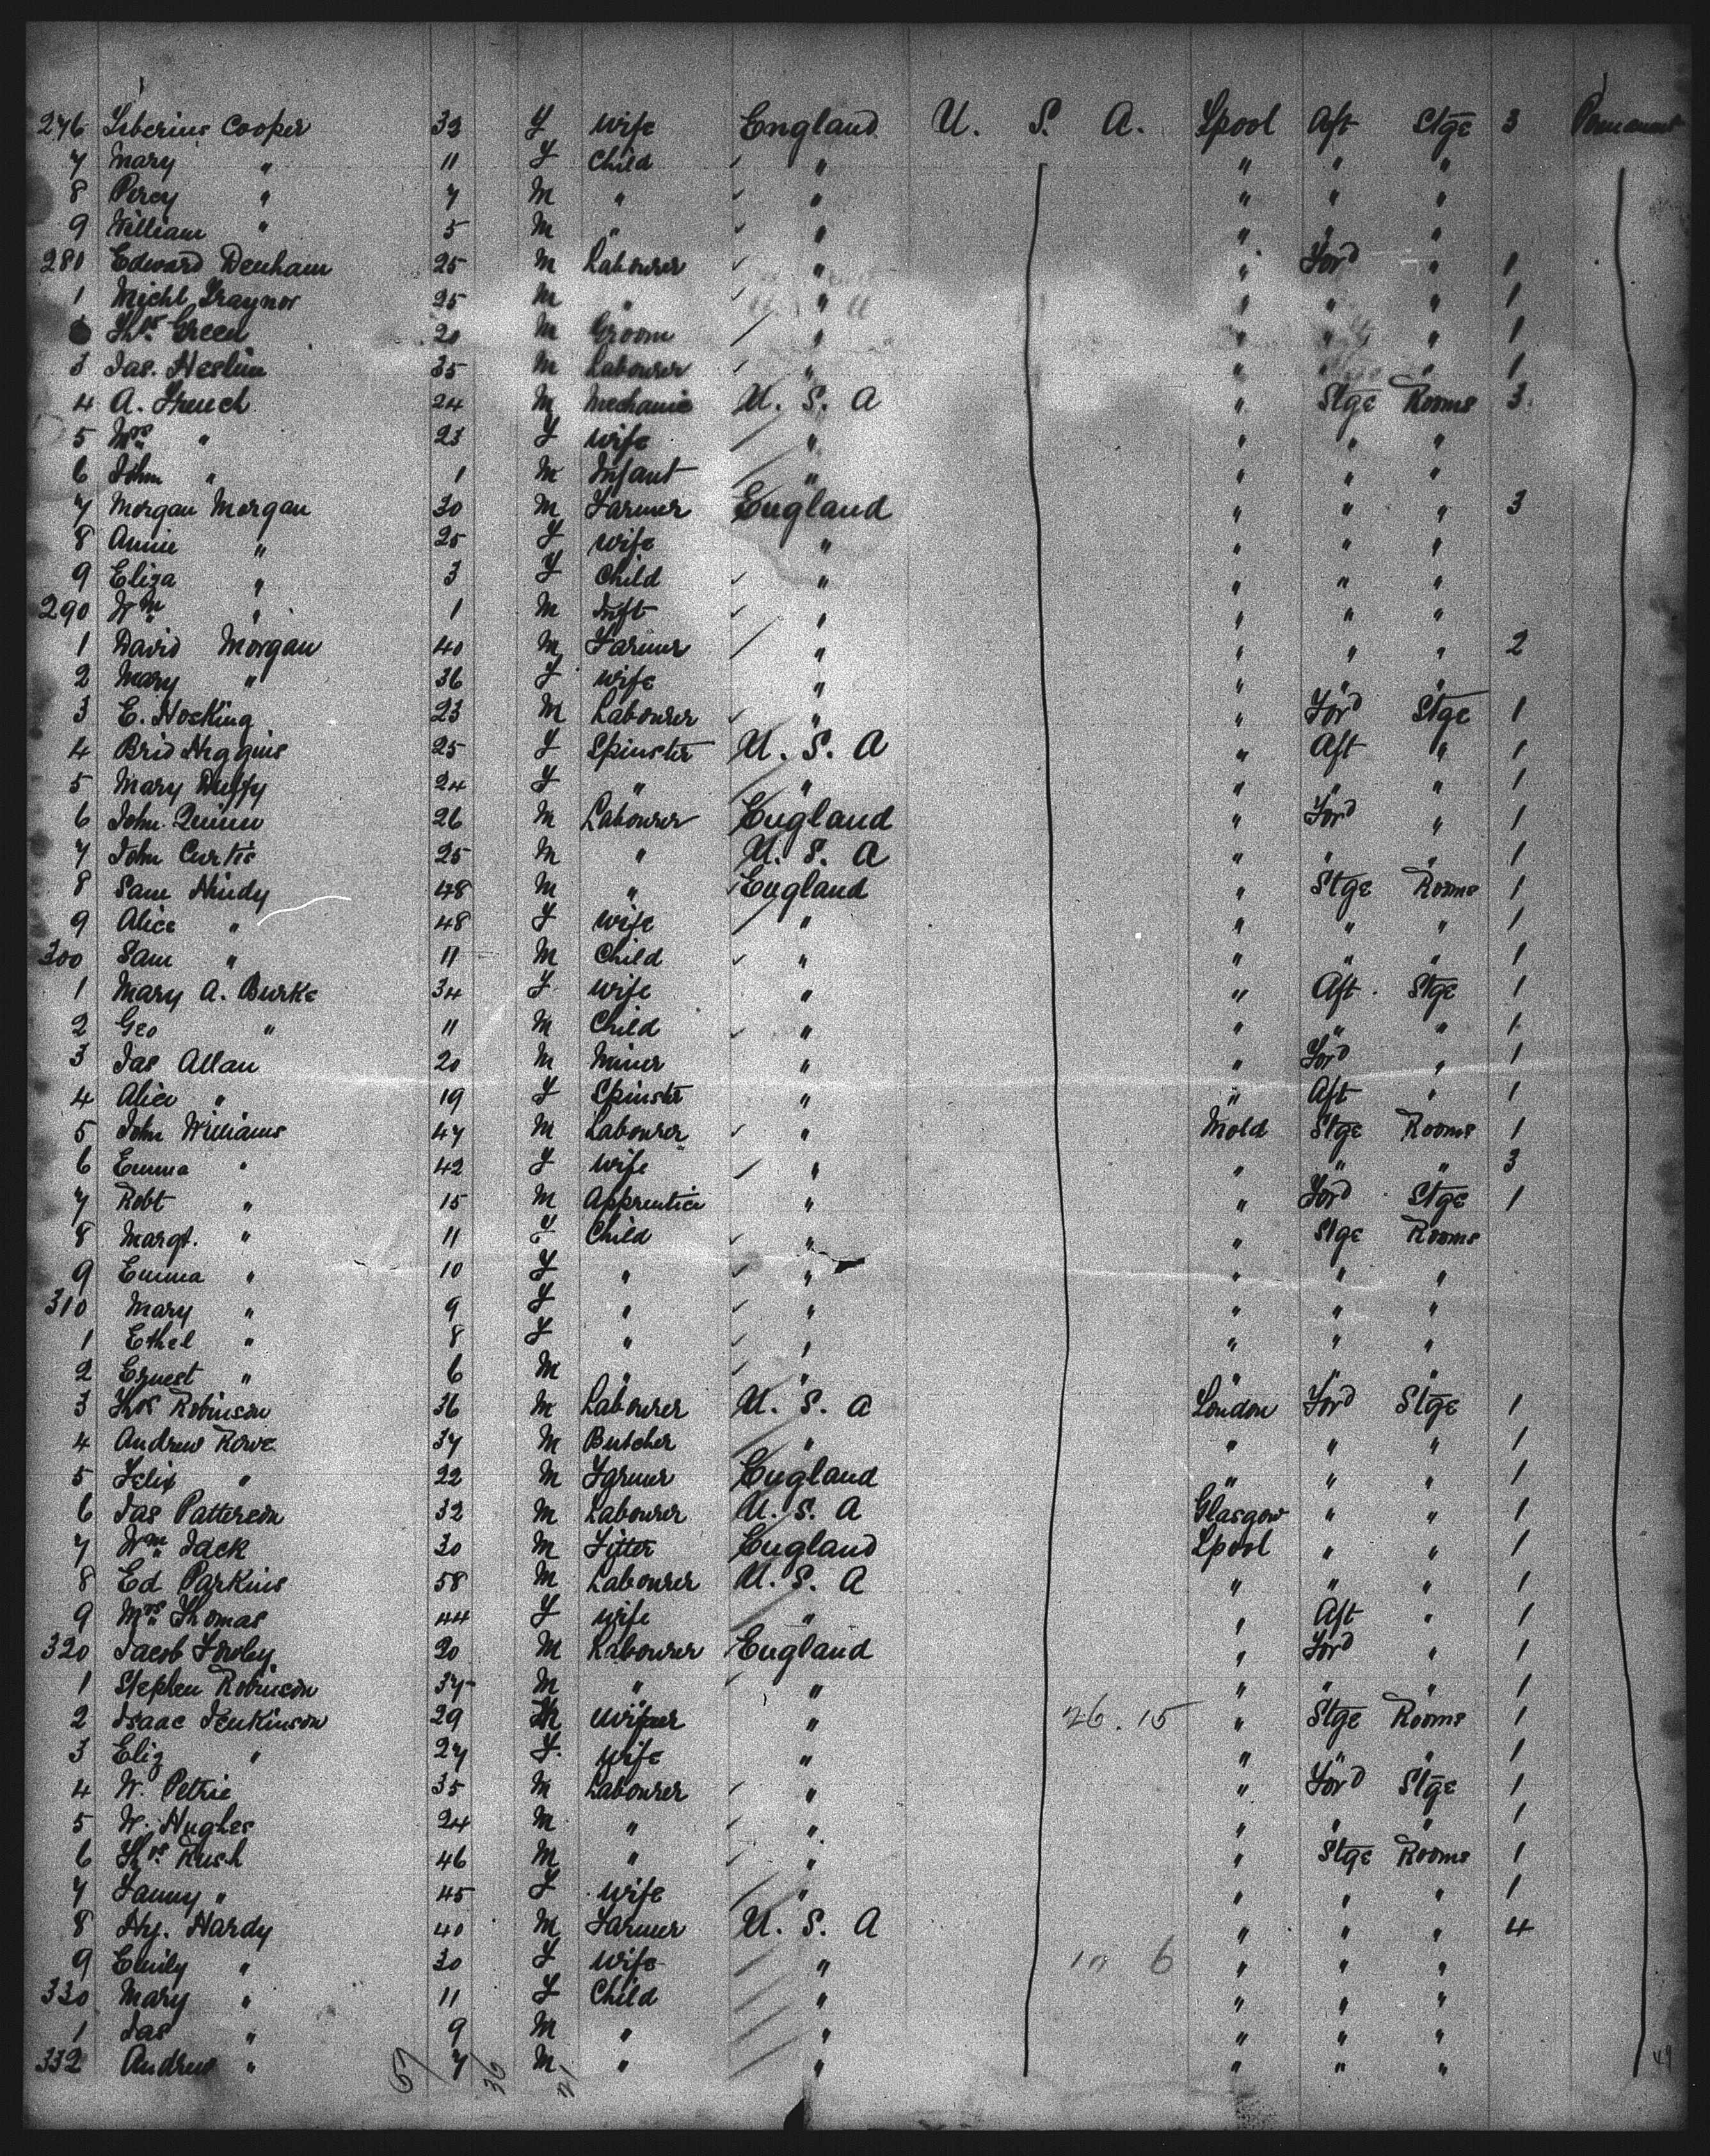 276 Liberius Cooper 32 F wife England U. S. A. Lpool Aft Stge 3 Permanent
7 Mary " 11 F Child " " " "
8 Percy " 7 M " " " " "
9 William " 5 M " " " " "
280 Edward Denham 25 M Labourer " " Ford " 1
1 Michl Traynor 25 M " " " " " 1
Thos Green 20 M Groom " " " " 1
3 Jas. Heslin 35 M Labourer " " " " 1
4 A. French 24 M Mechanic U. S. A " Stge Rooms 3
5 Mrs " 23 F wife " " " "
6 John " 1 M Infant " " " "
7 Morgan Morgan 30 M Farmer England " " " 3
8 Annie " 25 F wife " " " "
9 Eliza " 3 F Child " " " "
290 Wm " 1 M Inft " " " "
1 David Morgan 40 M Farmer " " " " 2
2 Mary " 36 F wife " " " "
3 E. Hosking 23 M Labourer " " Ford Stge 1
4 Brid Higgins 25 F Spinster U. S. A " Aft " 1
5 Mary Duffy 24 F " " " " " 1
6 John Quinn 26 M Labourer England " Ford " 1
7 John Curtis 25 M " U. S. A " " " 1
8 Sam Hindy 48 M " England " Stge Rooms 1
9 Alice " 48 F wife " " " " 1
300 Sam " 11 M Child " " " " 1
1 Mary A. Burke 34 F wife " " Aft Stge 1
2 Geo " 11 M Child " " " " 1
3 Jas Allan 20 M Miner " " Ford " 1
4 Alice " 19 F Spinster " " Aft " 1
5 John Williams 47 M Labourer " Mold Stge Rooms 1
6 Emma " 42 F wife " " " " 3
7 Robt " 15 M Apprentice " " Ford Stge 1
8 Margt. " 11 F Child " " Stge Rooms
9 Emma " 10 F " " " " "
310 Mary " 9 F " " " " "
1 Ethel " 8 F " " " " "
2 Ernest " 6 M " " " " "
3 Thos Robinson 36 M Labourer U. S. A London Ford Stge 1
4 Andrew Rowe 37 M Butcher " " " " 1
5 Felix " 22 M Farmer England " " " 1
6 Jas Patterson 32 M Labourer U. S. A Glasgow " " 1
7 Wm Jack 30 M Fitter England Lpool " " 1
8 Ed Parkins 58 M Labourer U. S. A " " " 1
9 Mrs Thomas 44 F wife " " Aft " 1
320 Jacob Fowley 20 M Labourer England " Ford " 1
1 Stephen Robinson 37 M " " " " " 1
2 Isaac Jenkinson 29 M " 26. 15 " Stge Rooms 1
3 Eliz " 27 F. wife " " " " 1
4 W. Petrie 35 M Labourer " " Ford Stge 1
5 W. Hughes 24 M " " " " " 1
6 Thos. Rush 46 M " " " Stge Rooms 1
7 Fanny " 45 F wife " " " " 1
8 Hy. Hardy 40 M Farmer U. S. A " " " 4
9 Emily " 30 F wife " 6 " " "
330 Mary " 11 F Child " " " "
1 Jas " 9 M " " " " "
332 Andrew " 7 M " " " " "
57 36 21